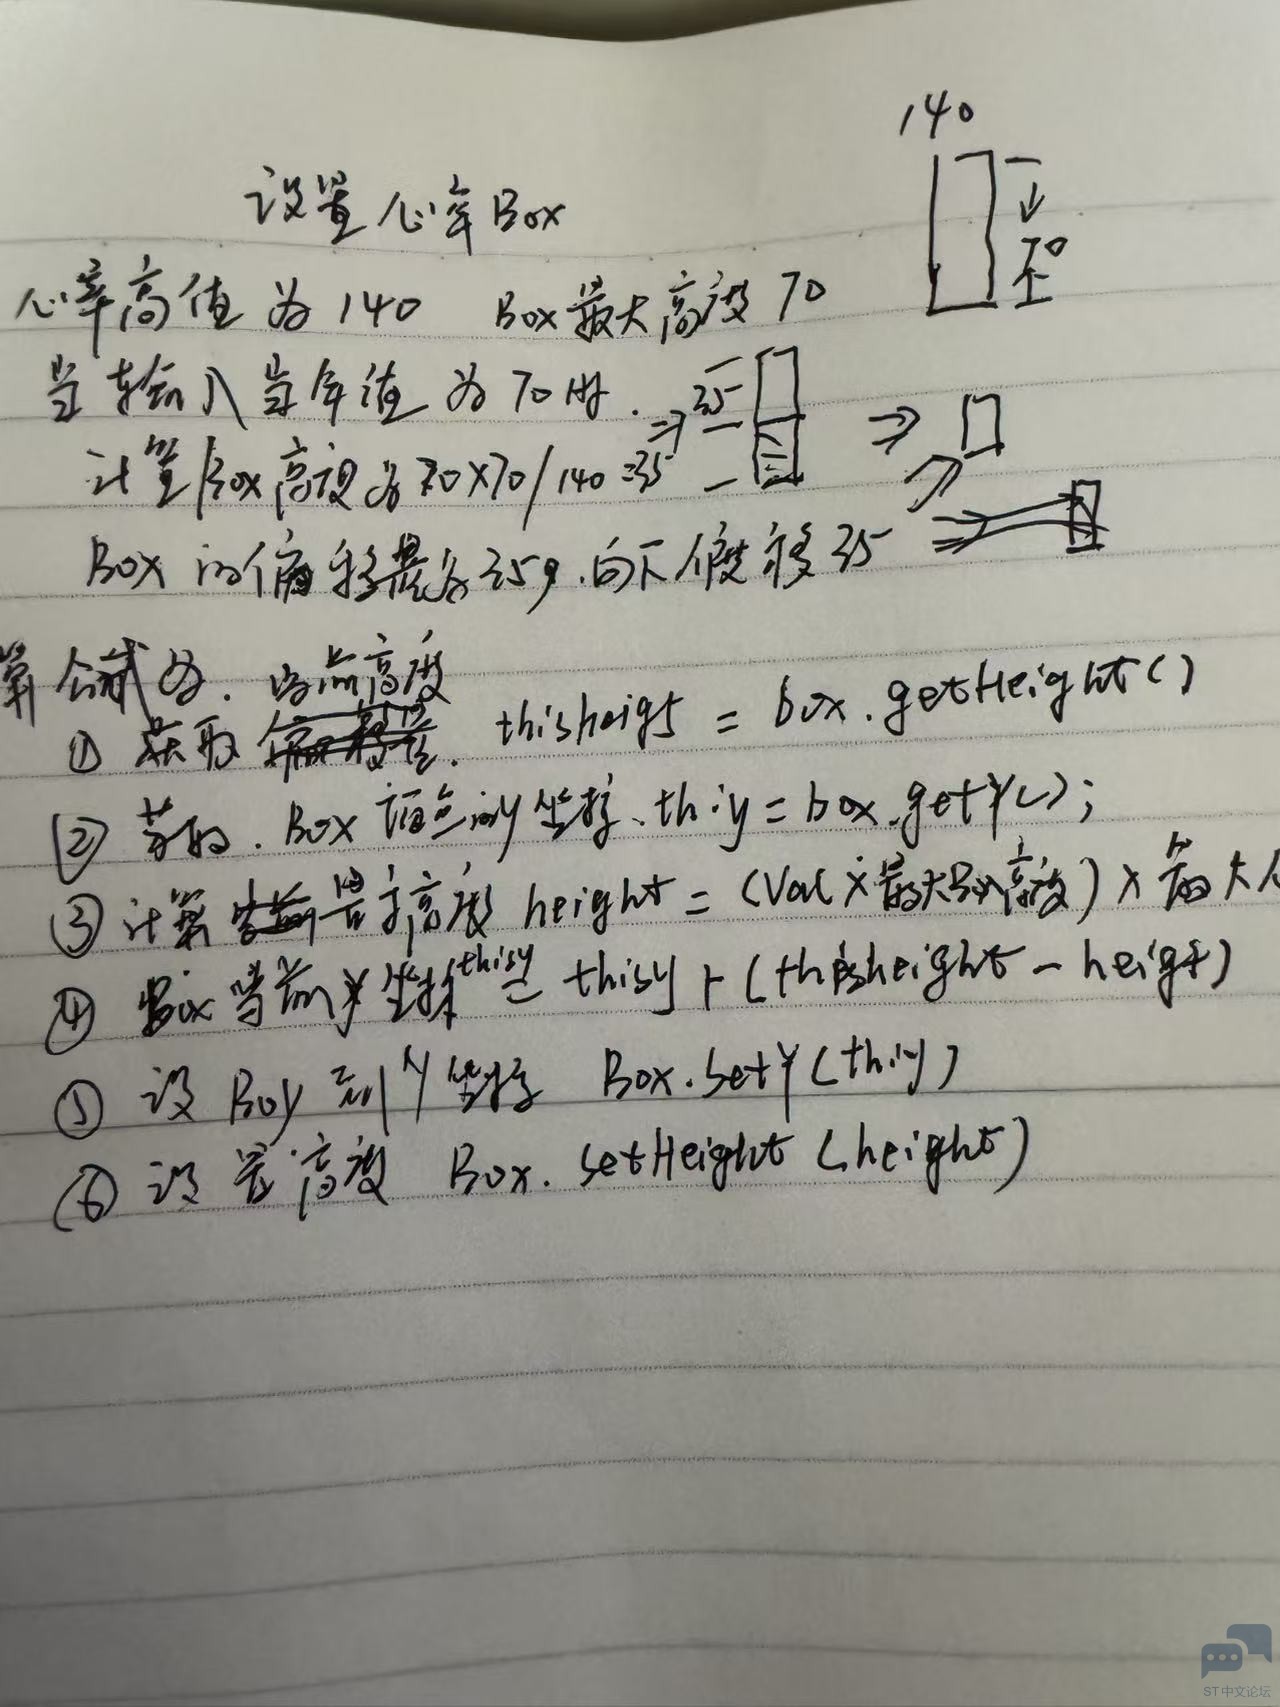 140
设置心率Box
心率高值为140 Box最大高度70
70
当输入当年值为70时. => 35 =>
计算Box高度为70X70/140=35
Box的偏移量为35, 向下偏移35
算公式为. 当前高度
① 获取 thisheigt = box.getHeight()
② 获取. Box 的y坐标. thiy = box.getY();
③ 计算 高度 height = (Val X 最大 高度) X 最大
④ Box当前y坐标 thisy = thisy + (thisheight - heigt)
⑤ 设Boy Y坐标 Box.setY(thiy)
⑥ 设置高度 Box.setHeight(height)
ST中文论坛